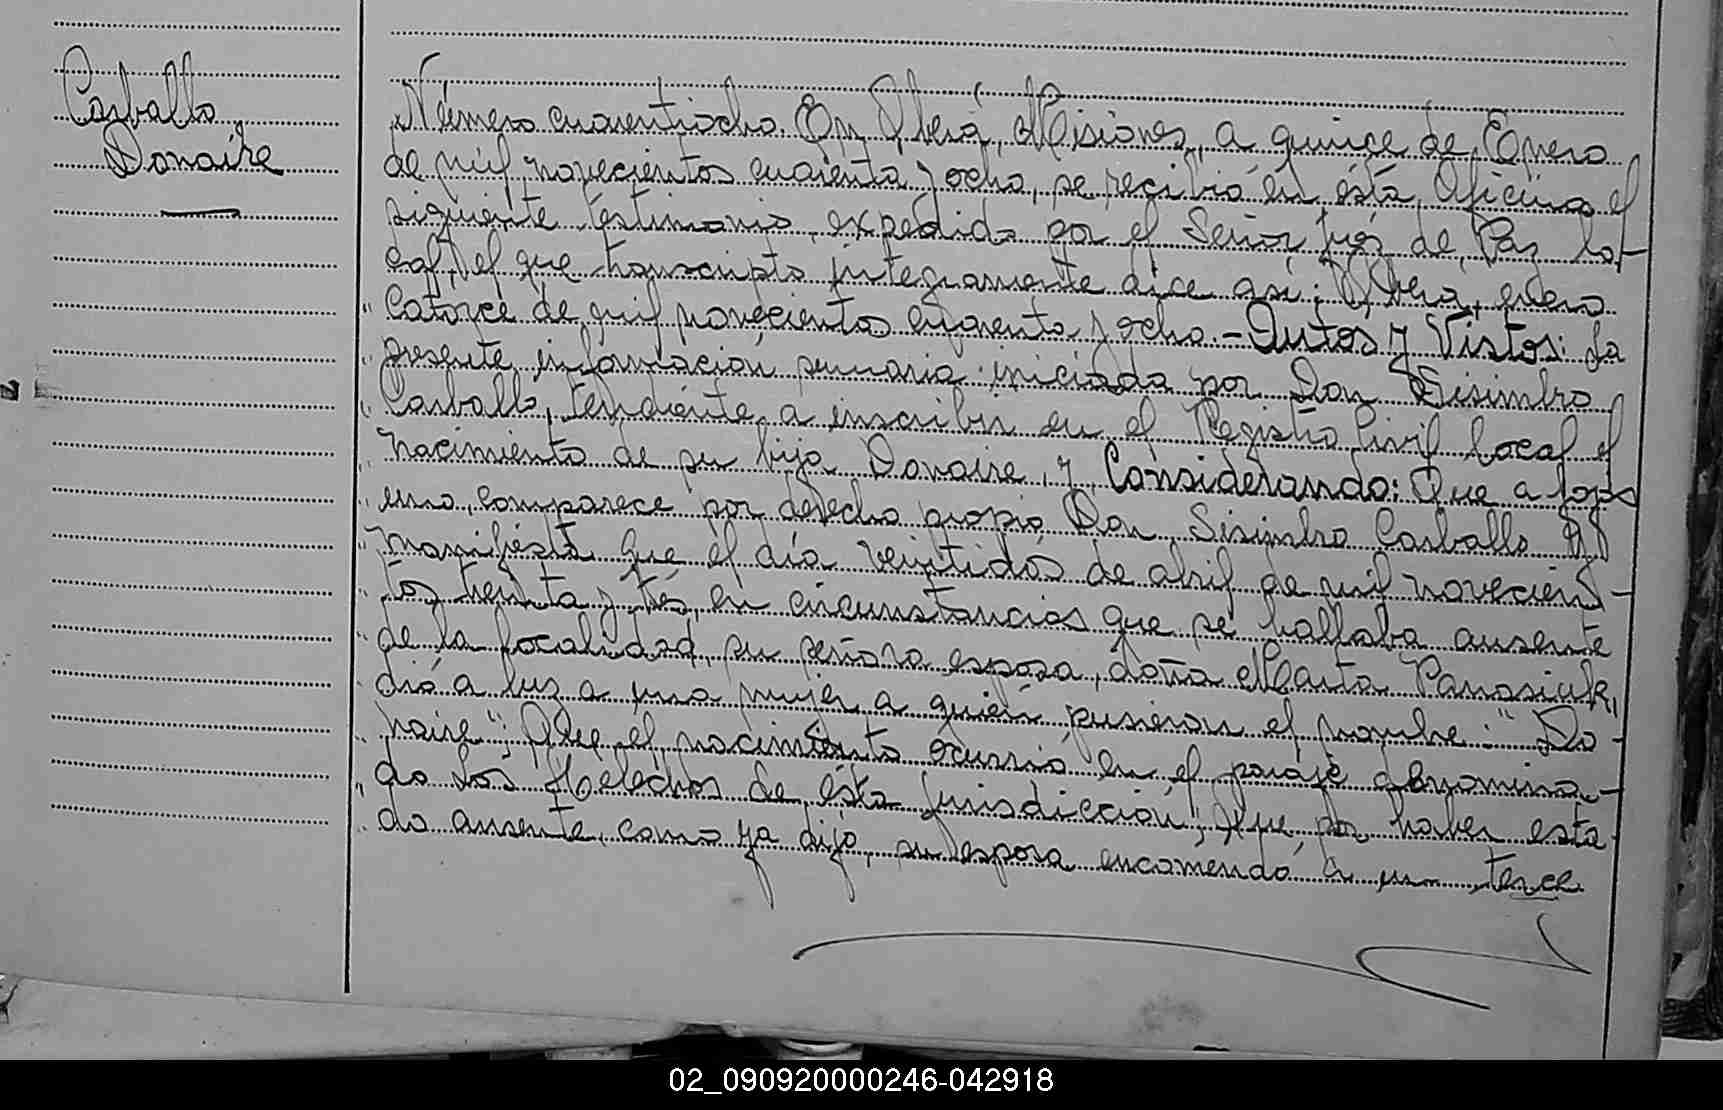 Carballo
Donaire
Número cuarentiocho. En Oberá, Misiones, a quince de Enero
de mil novecientos cuarenta y ocho, se recibió en ésta Oficina el
siguiente testimonio, expedido por el Señor Juéz de Paz lo-
cal, el que transcripto íntegramente dice así: Oberá, enero
" catorce de mil novecientos cuarenta y ocho.- Autos y Vistos: La
" presente información sumaria iniciada por Don Sisimbro
" Carballo, tendiente a inscribir en el Registro Civil local el
" nacimiento de su hija Donaire, y Considerando: Que a fojas
" uno, comparece por derecho propio Don Sisimbro Carballo y
" manifiesta que el día veintidós de abril de mil novecien-
" tos treinta y tres, en circunstancias que se hallaba ausente
" de la localidad, su señora esposa, doña Marta Panasiuk,
" dió a luz a una mujer a quién pusieron el nombre: "Do-
" naire"; Que el nacimiento ocurrió en el paraje denomina-
" do Los Helechos de ésta jurisdicción"; Que por haber esta-
" do ausente, como ya dijo, su esposa encomendó a un terce
02_090920000246-042918